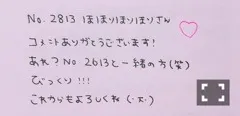 No. 2813 ほまりほりほまりさん
コメントありがとうございます!
あれ?No 2613と一緒の方(笑)
びっくり!!!
これからもよろしくね(・ᴥ・)